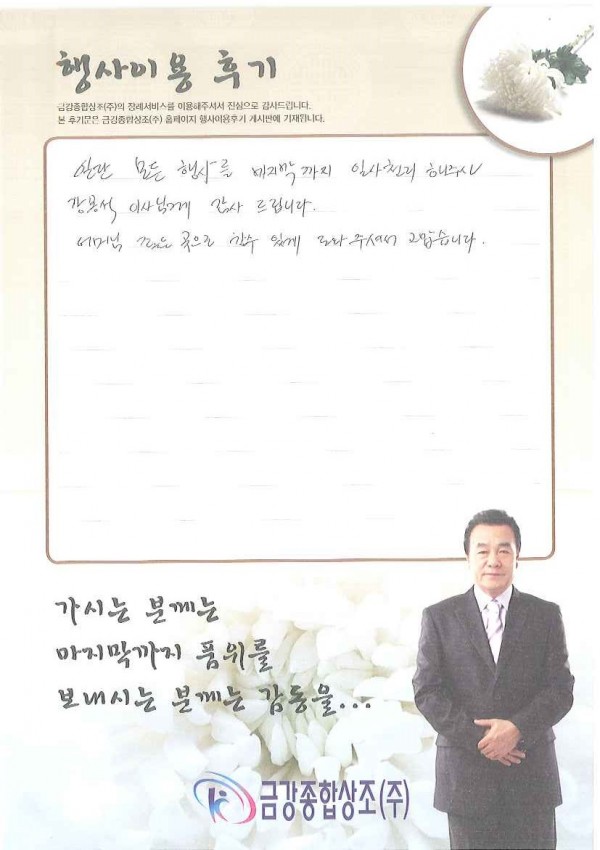 행사이용 후기
금강종합상조(주)의 장례서비스를 이용해주셔서 진심으로 감사드립니다.
본 후기문은 금강종합상조(주) 홈페이지 행사이용후기 게시판에 기재됩니다.
모든 행사를 마지막까지 일사천리 해주신
강봉석 이사님께 감사 드립니다.
어머님 좋은 곳으로 갈수 있게 도와 주셔서 고맙습니다.
가시는 분께는
마지막까지 품위를
보내시는 분께는 감동을...
금강종합상조(주)